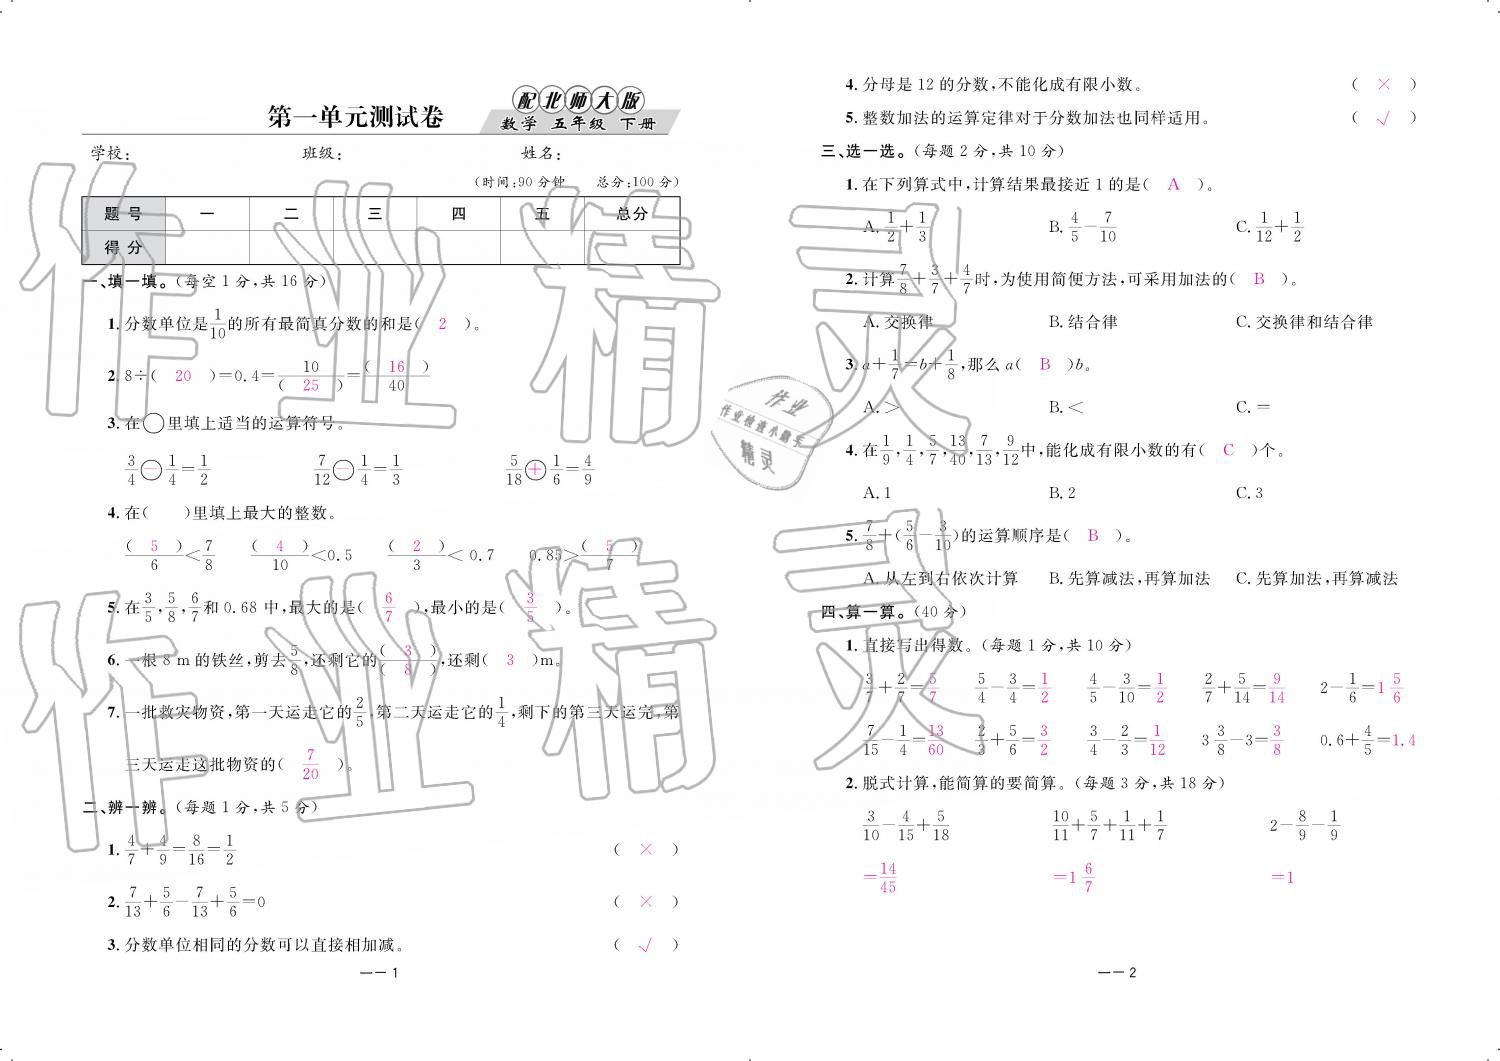 第一单元测试卷
配北师大版
数学 五年级 下册
学校: 班级: 姓名:
(时间:90分钟 总分:100分)
题号 一 二 三 四 五 总分
得分
一、填一填。(每空1分,共16分)
1. 分数单位是1/10的所有最简真分数的和是( 2 )。
2. 8÷( 20 )=0.4=10/( 25 )=( 16 )/40
3. 在○里填上适当的运算符号。
3/4 ⊖ 1/4=1/2 7/12 ⊖ 1/4=1/3 5/18 ⊕ 1/6=4/9
4. 在( )里填上最大的整数。
( 5 )/6<7/8 ( 4 )/10<0.5 ( 2 )/3<0.7 0.85>( 5 )/7
5. 在3/5,5/8,6/7和0.68中,最大的是( 6/7 ),最小的是( 3/5 )。
6. 一根8 m的铁丝,剪去5/8,还剩它的( 3 )/( 8 ),还剩( 3 )m。
7. 一批救灾物资,第一天运走它的2/5,第二天运走它的1/4,剩下的第三天运完,第
三天运走这批物资的( 7/20 )。
二、辨一辨。(每题1分,共5分)
1. 4/7+4/9=8/16=1/2 ( × )
2. 7/13+5/6-7/13+5/6=0 ( × )
3. 分数单位相同的分数可以直接相加减。 ( √ )
一一1
4. 分母是12的分数,不能化成有限小数。 ( × )
5. 整数加法的运算定律对于分数加法也同样适用。 ( √ )
三、选一选。(每题2分,共10分)
1. 在下列算式中,计算结果最接近1的是( A )。
A. 1/2+1/3 B. 4/5-7/10 C. 1/12+1/2
2. 计算7/8+3/7+4/7时,为使用简便方法,可采用加法的( B )。
A. 交换律 B. 结合律 C. 交换律和结合律
3. a+1/7=b+1/8,那么a( B )b。
A. > B. < C. =
4. 在1/9,1/4,5/7,13/40,7/13,9/12中,能化成有限小数的有( C )个。
A. 1 B. 2 C. 3
5. 7/8+(5/6-3/10)的运算顺序是( B )。
A. 从左到右依次计算 B. 先算减法,再算加法 C. 先算加法,再算减法
四、算一算。(40分)
1. 直接写出得数。(每题1分,共10分)
3/7+2/7=5/7 5/4-3/4=1/2 4/5-3/10=1/2 2/7+5/14=9/14 2-1/6=1 5/6
7/15-1/4=13/60 2/3+5/6=3/2 3/4-2/3=1/12 3 3/8-3=3/8 0.6+4/5=1.4
2. 脱式计算,能简算的要简算。(每题3分,共18分)
3/10-4/15+5/18 10/11+5/7+1/11+1/7 2-8/9-1/9
=14/45 =1 6/7 =1
一一2
作业精灵
作业精灵
作业
作业检查小助手
精灵